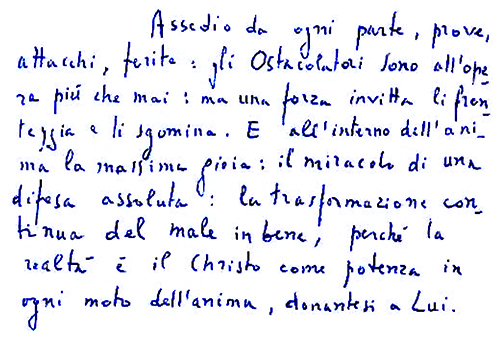 Assedio da ogni parte, prove,
attacchi, ferite: gli Ostacolatori sono all'ope
ra più che mai: ma una forza invitta li fron
teggia e li sgomina. E all'interno dell'ani_
ma la massima gioia: il miracolo di una
difesa assoluta: la trasformazione con_
tinua del male in bene, perché la
realtà è il Christo come potenza in
ogni moto dell'anima, donantesi a Lui.